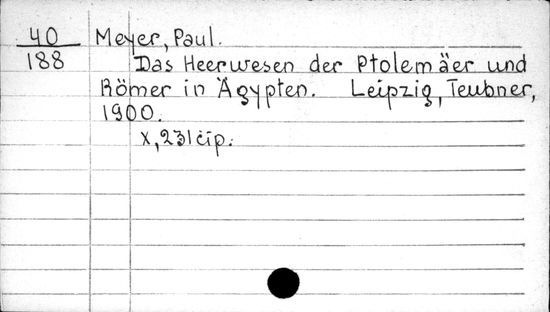 40
188
Meyer, Paul.
Das Heerwesen der Ptolemäer und
Römer in Ägypten. Leipzig, Teubner,
1900.
X, 231 стр.